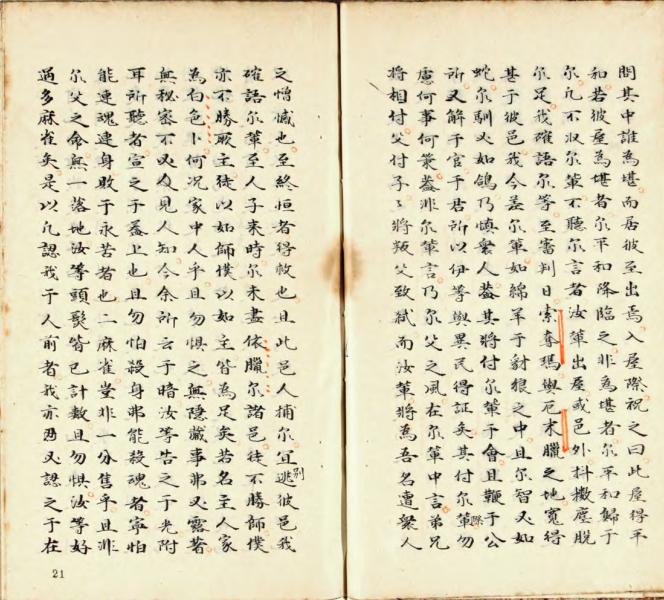 問其中誰為堪而居彼至出焉入屋際祝之曰此屋得平
和若彼屋為堪者尔平和降臨之非為堪者尔平和歸于
尔凡不収尔輩不聽尔言者汝輩出屋或邑外抖擻塵脫
尔足我確語尔等至審判日索奪瑪與厄末臘之地寬得
甚于彼邑我今差尔輩如綿羊于豺狼之中且尔智又如
蛇尔馴又如鴿乃慎衆人葢其將付尔輩于會且鞭于公
所又解于官于君所以伊等與異民得証矣其付尔輩際勿
慮何事何策葢非尔輩言乃尔父之風在尔輩中言弟兄
將相付父付子〻將叛父致弒而汝輩將為吾名遭衆人
之憎慽也至終恒者得救也且此邑人捕尔宜逃別彼邑我
確語尔輩至人子来時尔未盡依臘尔諸邑徒不勝師僕
亦不勝厥主徒以如師僕以如主皆為足矣若名主人家
為白色卜何况家中人乎且勿惧之無隐藏事弗又露著
無秘密不又及見人知今余所云于暗汝等告之于光附
耳所聽者宣之于葢上也且勿怕殺身弗能殺魂者寧怕
能連魂連身敗于永苦者也二麻雀豈非一分售乎且非
尔父之命無一落地汝等頭髮皆已計數且勿惧汝等好
過多麻雀矣是以凡認我于人前者我亦乃又認之于在
21